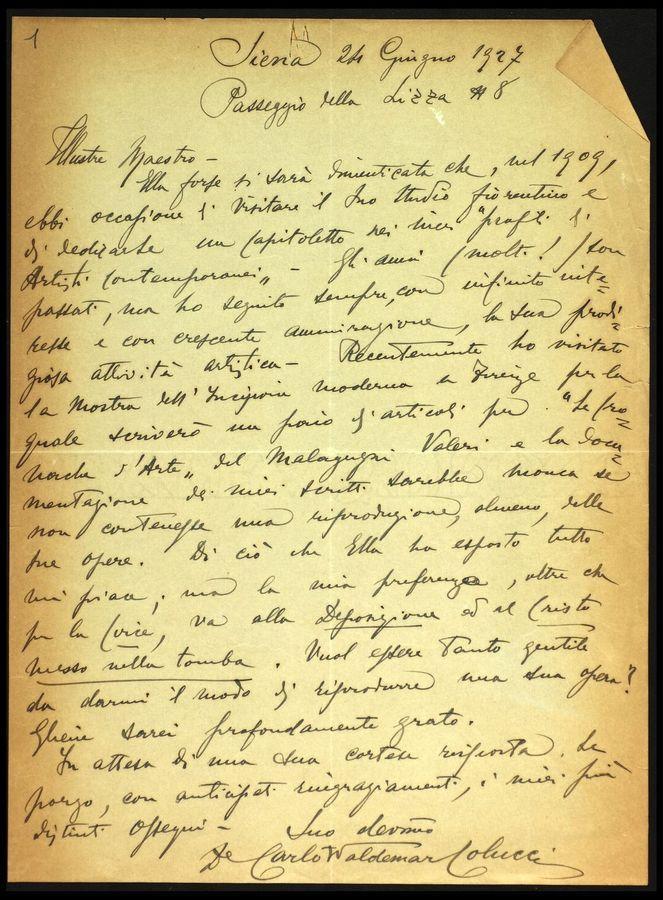 1
Siena 24 Giugno 1927
Passeggio della Lizza # 8
Illustre Maestro –
Ella forse si sarà dimenticata che, nel 1909,
ebbi occasione di visitare il Suo studio fiorentino e
di dedicarle un Capitoletto nei miei "profili di
Artisti Contemporanei„ – Gli anni (molti!) son
passati, ma ho seguito sempre, con infinito inte=
resse e con crescente ammirazione, la sua prodi=
giosa attività artistica – Recentemente ho visitato
la Mostra dell'Incisione moderna a Firenze per la
quale scriverò un paio d'articoli per "Le Cro=
nache d'Arte„ del Malaguzzi Valeri e la docu=
mentazione dei miei scritti sarebbe monca se
non contenesse una riproduzione, almeno, delle
sue opere. Di ciò che Ella ha esposto tutto
mi piace; ma la mia preferenza, oltre che
per la Croce, va alla Deposizione ed al Cristo
messo nella tomba. Vuol essere tanto gentile
da darmi il modo di riprodurre una sua opera?
Gliene sarei profondamente grato.
In attesa di una sua cortese risposta, Le
porgo, con anticipati ringraziamenti, i miei più
distinti ossequi –
Suo devmo
De Carlo Waldemar Colucci